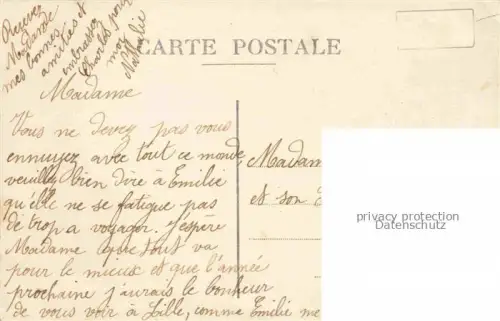 Recevez
Madame
mes bonnes
amitiés et
embrassez
Charles pour
moi
Nathalie
CARTE POSTALE
Madame
Vous ne devez pas vous
ennuyez avec tout ce monde,
veuillez bien dire à Emilie
qu'elle ne se fatigue pas
de trop a voyager. J'espère
Madame que tout va
pour le mieux et que l'année
prochaine j'aurais le bonheur
de vous voir à Lille, comme Emilie me
Madam
et son
privacy protection
Datenschutz